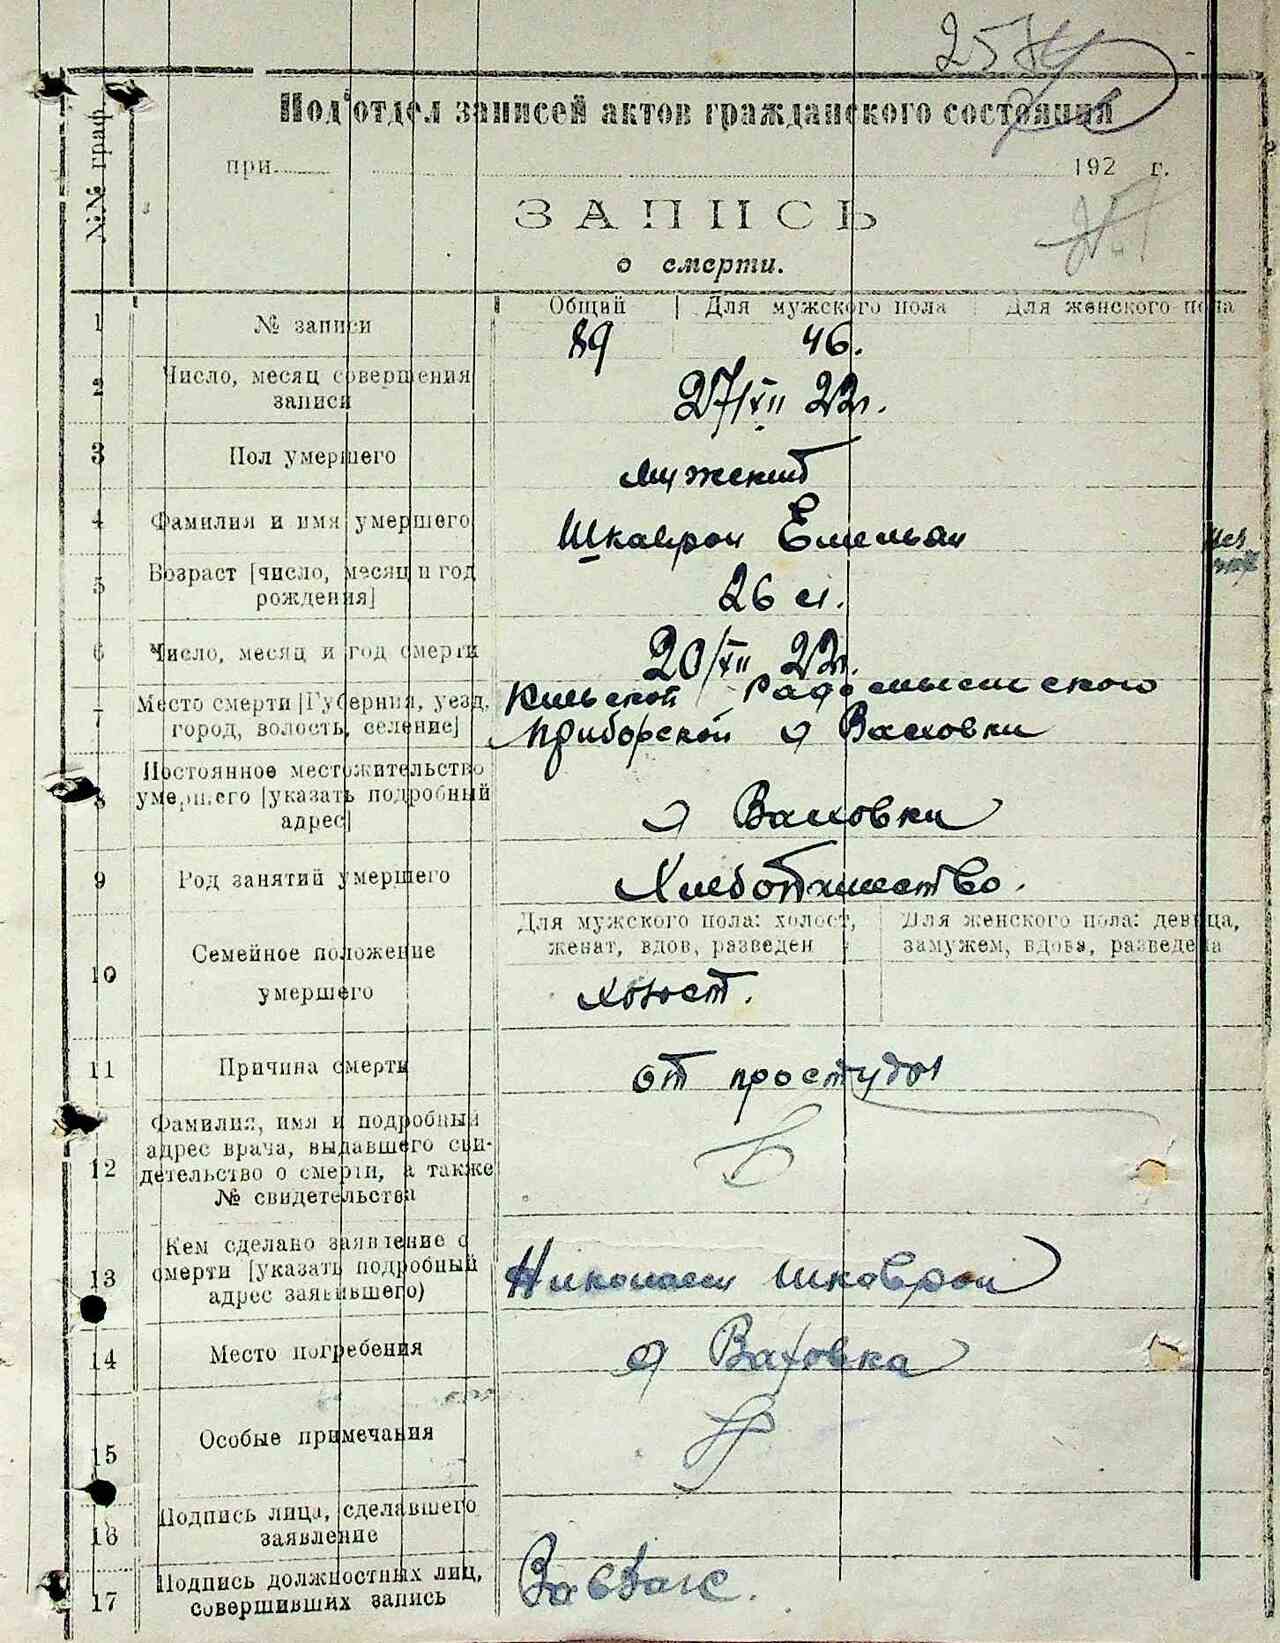 Под'отдел записей актов гражданского состояния
при 192 г.
ЗАПИСЬ
о смерти.
№№ граф
Общий Для мужского пола Для женского пола
1 № записи 89 46.
2 Число, месяц совершения записи 27/XII 22г.
3 Пол умершего мужской
4 Фамилия и имя умершего Шкаврон Емельян
5 Возраст [число, месяц и год рождения] 26 л.
6 Число, месяц и год смерти 20/XII 22г.
7 Место смерти [Губерния, уезд, город, волость, селение] Киевской Радомысльского
Приборской д Ваховки
8 Постоянное местожительство умершего [указать подробный адрес] д Ваховки
9 Род занятий умершего Хлебопашество.
Для мужского пола: холост, женат, вдов, разведен
Для женского пола: девица, замужем, вдова, разведена
10 Семейное положение умершего холост.
11 Причина смерти от простуды
12 Фамилия, имя и подробный адрес врача, выдавшего свидетельство о смерти, а также № свидетельства
13 Кем сделано заявление о смерти [указать подробный адрес заявившего) Николаем Шкаврон
14 Место погребения д Ваховка
15 Особые примечания
16 Подпись лица, сделавшего заявление
17 Подпись должностных лиц, совершивших запись